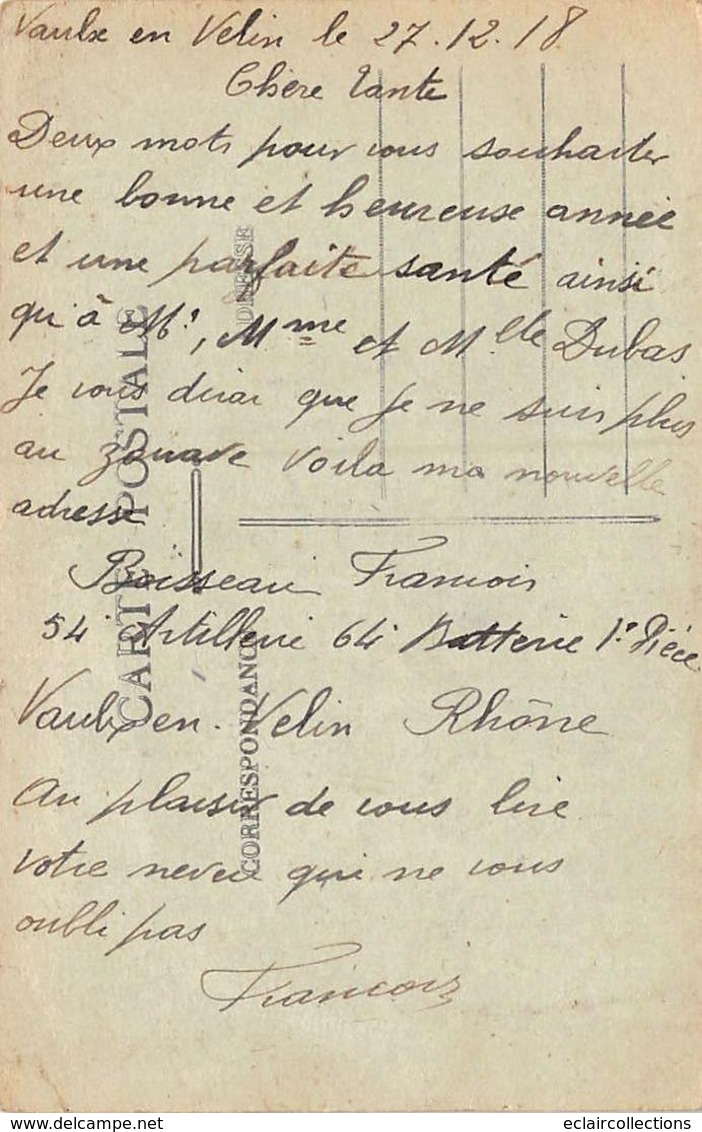 Vaulx en Velin le 27.12.18
Chère Tante
Deux mots pour vous souhaiter
une bonne et heureuse année
et une parfaite santé ainsi
qu'à Mr, Mme et Mlle Dubas.
Je vous dirai que je ne suis plus
au zouave voila ma nouvelle
adresse
Boisseau Francois
54e Artillerie 64e Batterie 1re Pièce
Vaulx en Velin Rhône
Au plaisir de vous lire
votre neveu qui ne vous
oubli pas
Francois
CARTE POSTALE
CORRESPONDANCE
ADRESSE
eclaircollections